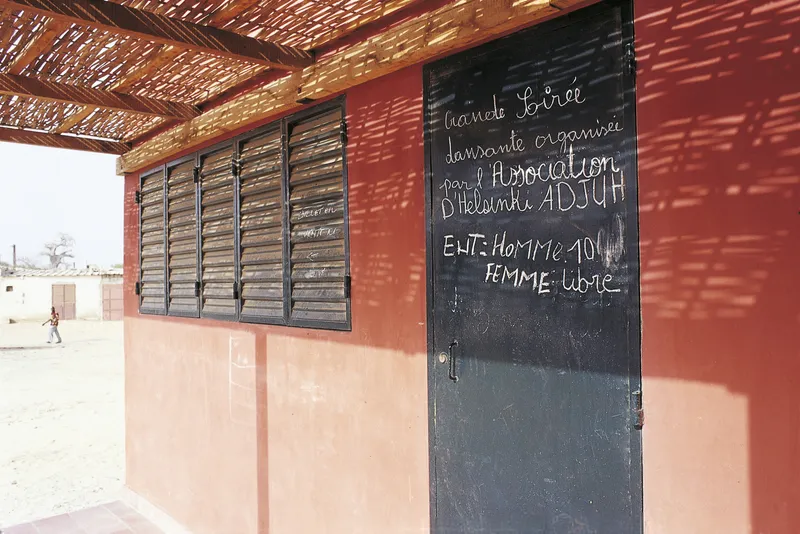 Grande Soirée
dansante organisée
par l'Association
D'Helsinki ADJUH
ENT: HOMME: 10
FEMME: libre